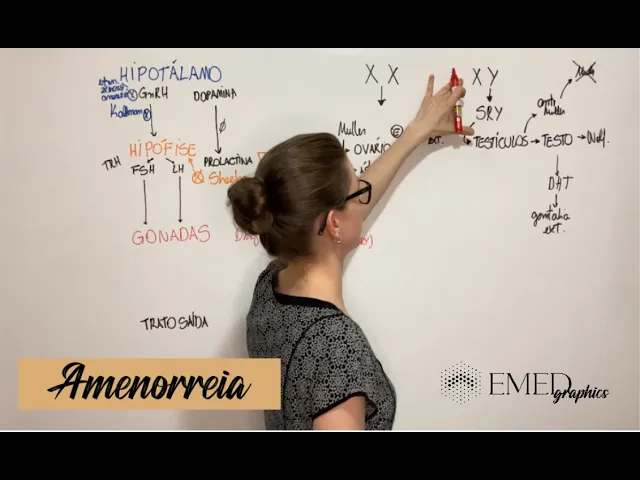 HIPOTÁLAMO
GnRH
Kallmann
DOPAMINA
HIPÓFISE
TRH
FSH LH
PROLACTINA
Sheeha
GONADAS
TRATO SAÍDA
X X
Muller
OVÁRIO
X Y
SRY
EXT.
TESTÍCULOS
TESTO
Wolf.
anti
Muller
Muller
DHT
genitália
ext.
Amenorreia
EMED
graphics